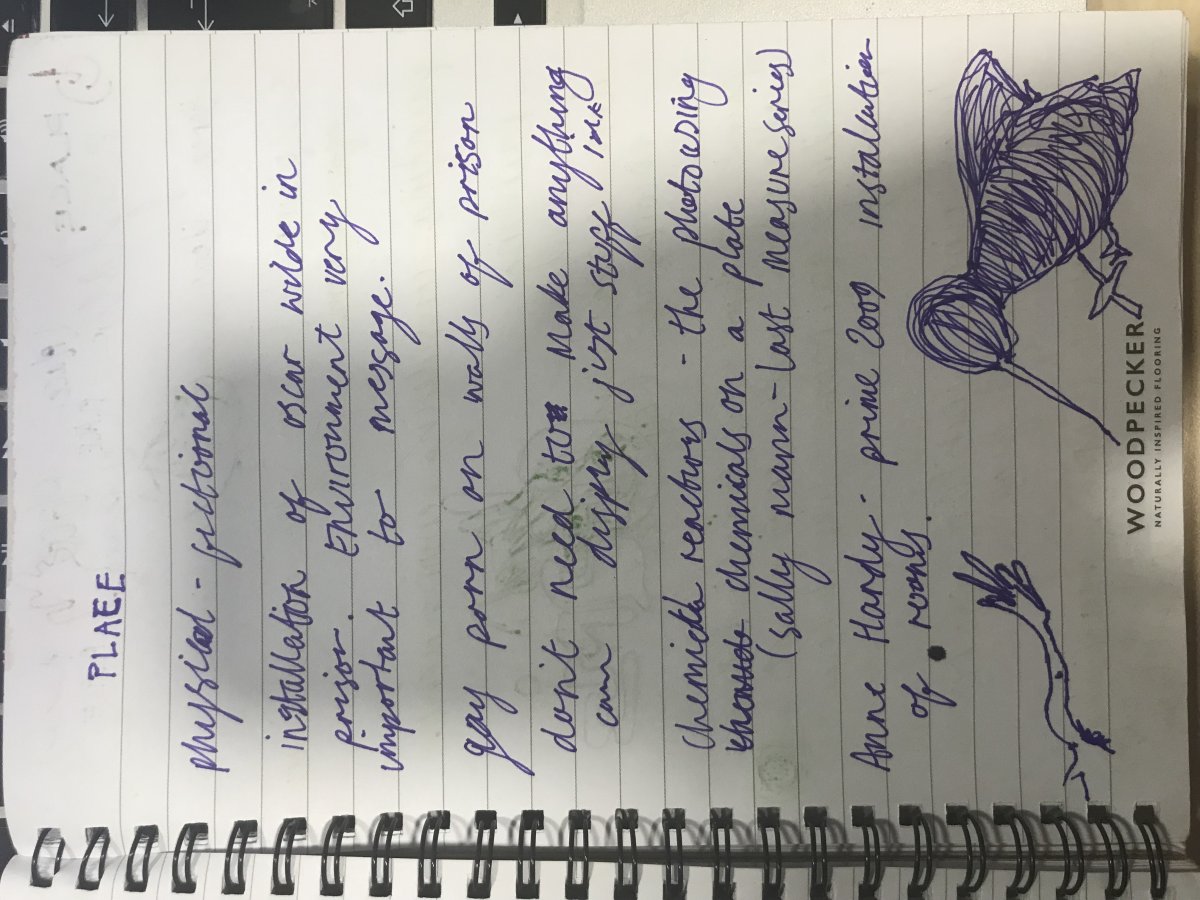 PLAEE
physical - fictional
installation of oscar wilde in
prison. Environment very
important to message.
gay porn on walls of prison
don't need to make anything
can display just stuff
Chemicla reactions - the photo using
chemicals on a plate
(Sally mann - Last measure series)
Anne Hardy - prime 2009 instalation
of rooms.
WOODPECKER
NATURALLY INSPIRED FLOORING